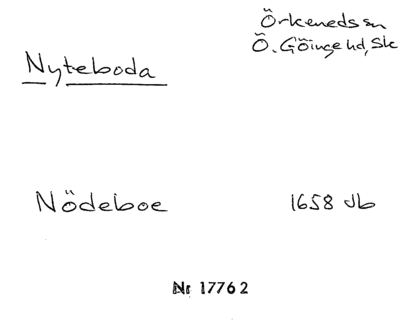 Örkeneds sn
Ö. Göinge hd, Sk
Nyteboda
Nödeboe 1658 Jb
Nr 17762